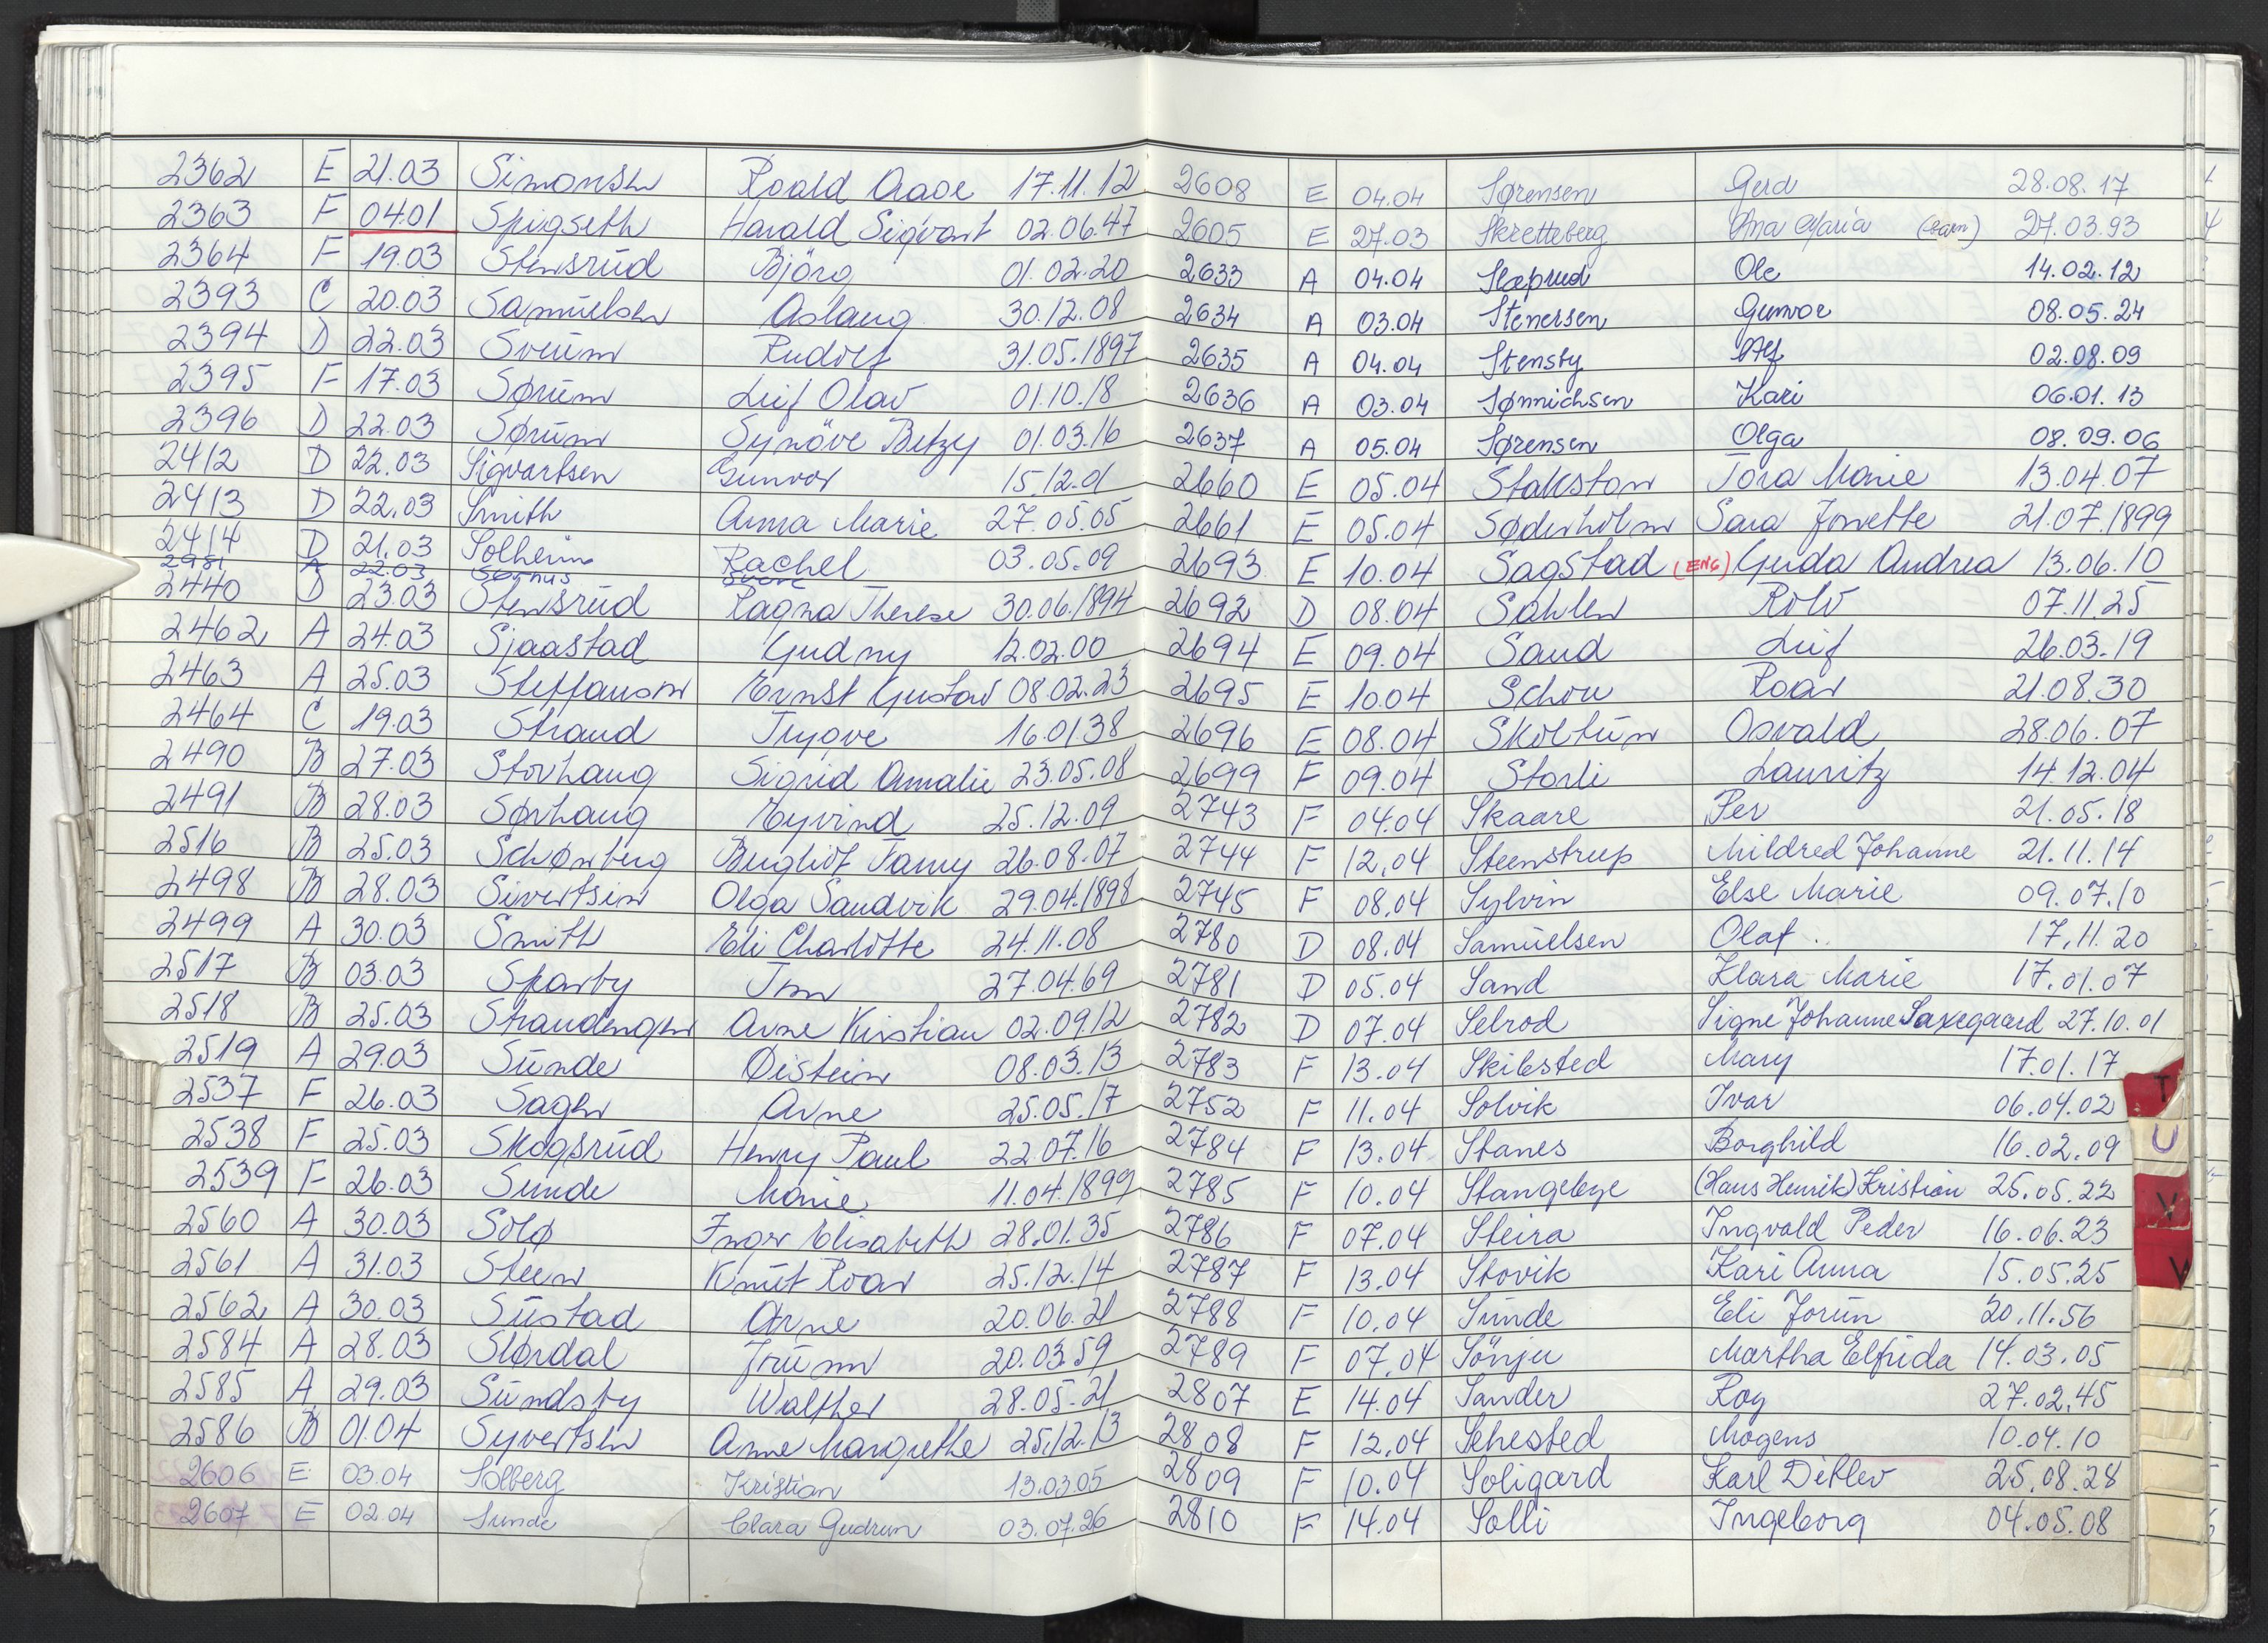 2362 E 21.03 Simonsen Roald Aage 17.11.12
2363 F 04.01 Spigseth Harald Sigvart 02.06.47
2364 F 19.03 Stensrud Björg 01.02.20
2393 C 20.03 Samuelsen Aslaug 30.12.08
2394 D 22.03 Sveum Rudolf 31.05.1897
2395 F 17.03 Sørum Leif Olav 01.10.18
2396 D 22.03 Sørum Synöve Betzy 01.03.16
2412 D 22.03 Sigvartsen Gunvor 15.12.01
2413 D 22.03 Smith Anna Marie 27.05.05
2414 D 21.03 Solheim Rachel 03.05.09
2981 A 22.03
2440 D 23.03 Stensrud Ragna Therese 30.06.1894
2462 A 24.03 Sjaastad Gudny 12.02.00
2463 A 25.03 Steffanson Ernst Gustav 08.02.23
2464 C 19.03 Strand Trygve 16.01.38
2490 B 27.03 Storhaug Sigrid Amalie 23.05.08
2491 B 28.03 Sørhaug Eyvind 25.12.09
2516 B 25.03 Schønberg Bergliot Fanny 26.08.07
2498 B 28.03 Sivertsen Olga Sandvik 29.04.1898
2499 A 30.03 Smith Eli Charlotte 24.11.08
2517 B 03.03 Sparby Tom 27.04.69
2518 B 25.03 Strandengen Arne Kristian 02.09.12
2519 A 29.03 Sunde Øistein 08.03.13
2537 F 26.03 Sagen Arne 25.05.17
2538 F 25.03 Skogsrud Henry Paul 22.07.16
2539 F 26.03 Sunde Marie 11.04.1899
2560 A 30.03 Solø Inger Elisabeth 28.01.35
2561 A 31.03 Steen Knut Roar 25.12.14
2562 A 30.03 Sustad Arne 20.06.21
2584 A 28.03 Slørdal Jrunn 20.03.59
2585 A 29.03 Sundsby Walther 28.05.21
2586 B 01.04 Syvertsen Anne Margrethe 25.12.13
2606 E 03.04 Solberg Kristian 13.03.05
2607 E 02.04 Sunde Clara Gudrun 03.07.26
2608 E 04.04 Sørensen Gerd 28.08.17
2605 E 27.03 Skretteberg Ana Maria (barn) 27.03.93
2633 A 04.04 Slæprud Ole 14.02.12
2634 A 03.04 Stenersen Gunvor 08.05.24
2635 A 04.04 Stensby Alf 02.08.09
2636 A 03.04 Sønnichsen Kari 06.01.13
2637 A 05.04 Sørensen Olga 08.09.06
2660 E 05.04 Stakston Tora Marie 13.04.07
2661 E 05.04 Søderholm Sara Jonette 21.07.1899
2693 E 10.04 Sagstad (ENG) Gerda Andrea 13.06.10
2692 D 08.04 Sahlen Rolv 07.11.25
2694 E 09.04 Sand Leif 26.03.19
2695 E 10.04 Schou Roar 21.08.30
2696 E 08.04 Skoltun Osvald 28.06.07
2699 F 09.04 Storli Lauritz 14.12.04
2743 F 04.04 Skaare Per 21.05.18
2744 F 12.04 Steenstrup Mildred Johanne 21.11.14
2745 F 08.04 Sylvin Else Marie 09.07.10
2780 D 08.04 Samuelsen Olaf 17.11.20
2781 D 05.04 Sand Klara Marie 17.01.07
2782 D 07.04 Selrod Signe Johanne Saxegaard 27.10.01
2783 F 13.04 Skibsted Mary 17.01.17
2752 F 11.04 Solvik Ivar 06.04.02
2784 F 13.04 Stanes Borghild 16.02.09
2785 F 10.04 Stangebye (Hans Henrik) Kristian 25.05.22
2786 F 07.04 Steira Ingvald Peder 16.06.23
2787 F 13.04 Stovik Kari Anna 15.05.25
2788 F 10.04 Sunde Eli Jorun 20.11.56
2789 F 07.04 Sönju Martha Elfrida 14.03.05
2807 E 14.04 Sander Roy 27.02.45
2808 F 12.04 Sehested Mogens 10.04.10
2809 F 10.04 Soligard Karl Ditlev 25.08.28
2810 F 14.04 Solli Ingeborg 04.05.08
T
U
V